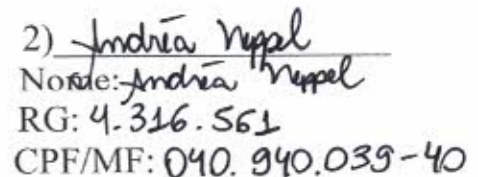 2) Andréa Neppel
Nome: Andréa Neppel
RG: 4.316.561
CPF/MF: 040.940.039-40